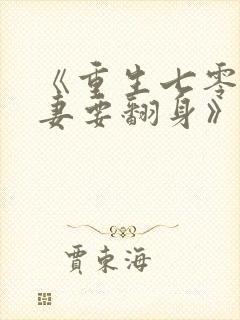 《重生七零
妻要翻身》
贾东海